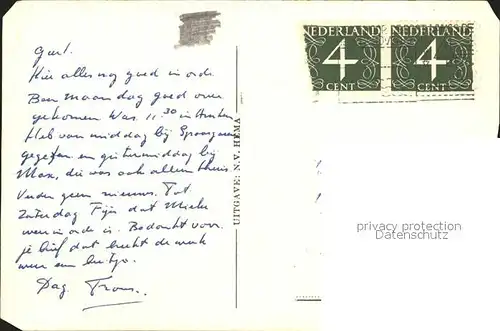 Gert.
Hier alles nog goed in orde
Ben maandag goed over
gekomen Was 11.30 in
Heb van middag bij
gegeten en gistermiddag bij
Max, die was ook alleen thuis.
Verder geen nieuws. Tot
Zaterdag Fijn dat Mieke
weer in orde is. Bedankt voor
je brief dat breekt de week
weer een beetje.
Dag Frans.
UITGAVE: N.V. HEMA
NEDERLAND NEDERLAND
4 4
CENT CENT
privacy protection
Datenschutz